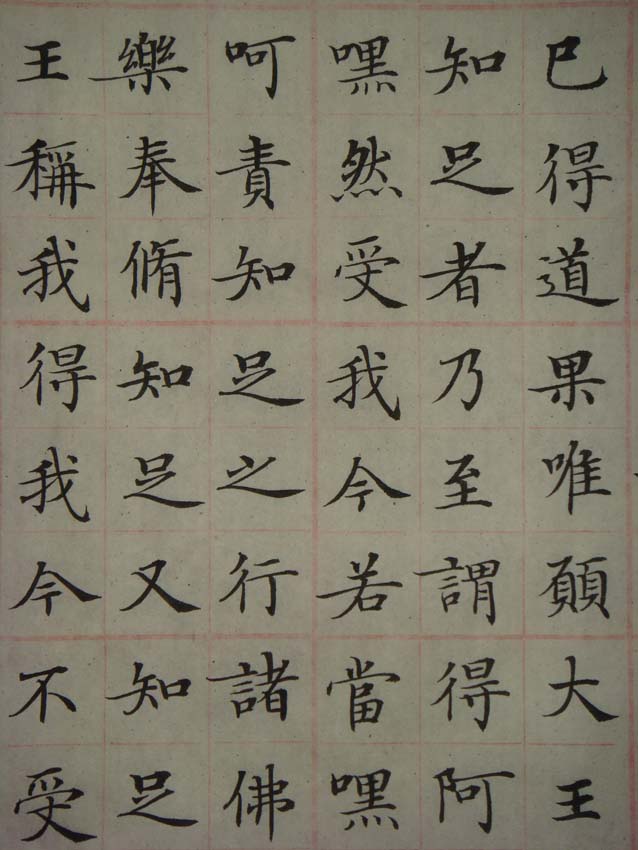 已得道果唯願大王
知足者乃至謂得阿
嘿然受我今若當嘿
呵責知足之行諸佛
樂奉脩知足又知足
王稱我得我今不受